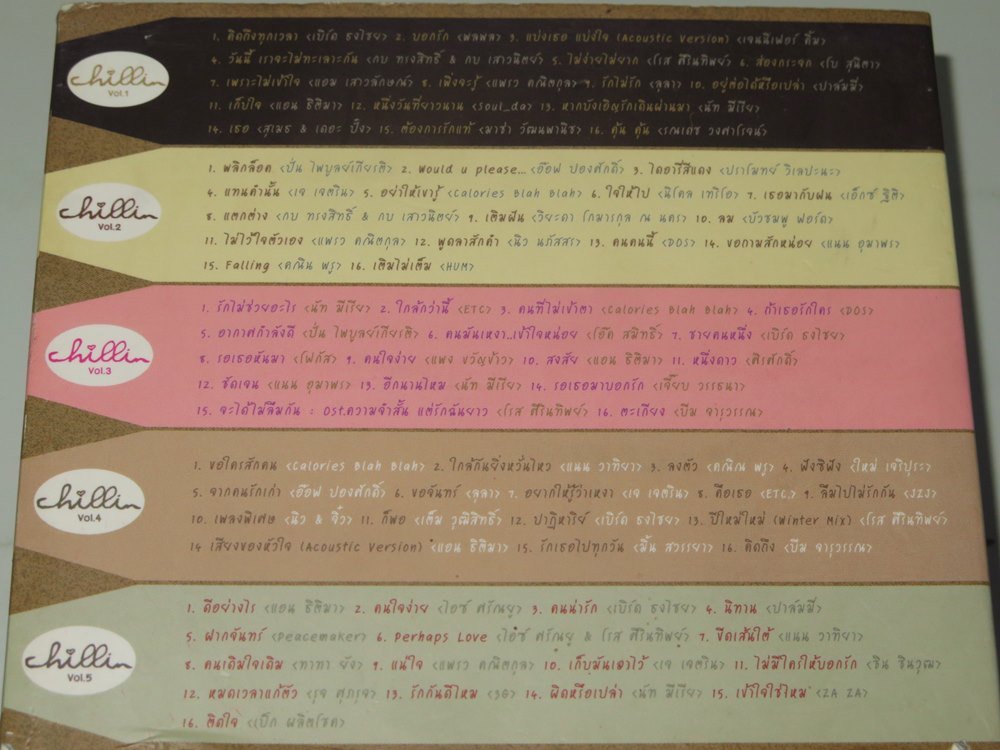 chillin
Vol.1
1. คิดถึงทุกเวลา <เบิร์ด ธงไชย> 2. บอกรัก <พลพล> 3. แบ่งเธอ แบ่งใจ (Acoustic Version) <เจนนิเฟอร์ คิ้ม>
4. วันนี้ เราจะไม่ทะเลาะกัน <กบ ทรงสิทธิ์ & กบ เสาวนิตย์> 5. ไม่ง่ายไม่ยาก <โรส ศิรินทิพย์> 6. ส่องกระจก <โบ สุนิตา>
7. เพราะไม่เข้าใจ <แอม เสาวลักษณ์> 8. เพิ่งจะรู้ <แพรว คณิตกุล> 9. รักไม่รัก <ลุลา> 10. อยู่ต่อได้หรือเปล่า <ปาล์มมี่>
11. เก็บใจ <แอน ธิติมา> 12. หนึ่งวันที่ยาวนาน <Soul_da> 13. หากบังเอิญรักเดินผ่านมา <นัท มีเรีย>
14. เธอ <สุเมธ & เดอะ ปั๋ง> 15. ต้องการรักแท้ <มาช่า วัฒนพานิช> 16. คุ้น คุ้น <รณเดช วงศาโรจน์>
chillin
Vol.2
1. พลิกล็อค <ปั่น ไพบูลย์เกียรติ> 2. Would u please... <อ๊อฟ ปองศักดิ์> 3. ไดอารี่สีแดง <ปราโมทย์ วิเลปะนะ>
4. แทนคำนั้น <เจ เจตริน> 5. อย่าให้เขารู้ <Calories Blah Blah> 6. ใจให้ไป <นิโคล เทริโอ> 7. เธอมากับฝน <เอ็กซ์ ฐิติ>
8. แตกต่าง <กบ ทรงสิทธิ์ & กบ เสาวนิตย์> 9. เติมฝัน <วิยะดา โกมารกุล ณ นคร> 10. ลม <บัวชมพู ฟอร์ด>
11. ไม่ไว้ใจตัวเอง <แพรว คณิตกุล> 12. พูดลาสักคำ <นิว นภัสสร> 13. คนคนนี้ <DOS> 14. ขอถามสักหน่อย <แนน อุมาพร>
15. Falling <คณิน พรู> 16. เติมไม่เต็ม <HUM>
chillin
Vol.3
1. รักไม่ช่วยอะไร <นัท มีเรีย> 2. ใกล้กว่านี้ <ETC> 3. คนที่ไม่เข้าตา <Calories Blah Blah> 4. ถ้าเธอรักใคร <DOS>
5. อากาศกำลังดี <ปั่น ไพบูลย์เกียรติ> 6. คนมันเหงา..เข้าใจหน่อย <โอ๊ต สมิทธิ์> 7. ชายคนหนึ่ง <เบิร์ด ธงไชย>
8. รอเธอหันมา <โฟกัส> 9. คนใจง่าย <แพง ขวัญข้าว> 10. สงสัย <แอน ธิติมา> 11. หนึ่งดาว <ศิรศักดิ์>
12. ชัดเจน <แนน อุมาพร> 13. อีกนานไหม <นัท มีเรีย> 14. รอเธอมาบอกรัก <เจี๊ยบ วรรธนา>
15. จะได้ไม่ลืมกัน : Ost.ความจำสั้น แต่รักฉันยาว <โรส ศิรินทิพย์> 16. ตะเกียง <บีม จารุวรรณ>
chillin
Vol.4
1. ขอใครสักคน <Calories Blah Blah> 2. ใกล้กันยิ่งหวั่นไหว <แนน วาทิยา> 3. ลงตัว <คณิน พรู> 4. ฟังซิฟัง <ใหม่ เจริปุระ>
5. จากคนรักเก่า <อ๊อฟ ปองศักดิ์> 6. ขอจันทร์ <ลุลา> 7. อยากให้รู้ว่าเหงา <เจ เจตริน> 8. คือเธอ <ETC.> 9. ลืมไปไม่รักกัน <JZJ>
10. เพลงพิเศษ <นิว & จิ๋ว> 11. ก็พอ <เต็ม วุฒิสิทธิ์> 12. ปาฏิหาริย์ <เบิร์ด ธงไชย> 13. ปีใหม่ใหม่ (Winter Mix) <โรส ศิรินทิพย์>
14 เสียงของหัวใจ (Acoustic Version) <แอน ธิติมา> 15. รักเธอไปทุกวัน <มิ้น สวรรยา> 16. คิดถึง <บีม จารุวรรณ>
chillin
Vol.5
1. ดีอย่างไร <แอน ธิติมา> 2. คนใจง่าย <ไอซ์ ศรัณยู> 3. คนน่ารัก <เบิร์ด ธงไชย> 4. นิทาน <ปาล์มมี่>
5. ฝากจันทร์ <Peacemaker> 6. Perhaps Love <ไอซ์ ศรัณยู & โรส ศิรินทิพย์> 7. ขีดเส้นใต้ <แนน วาทิยา>
8. คนเดิมใจเดิม <ทาทา ยัง> 9. แน่ใจ <แพรว คณิตกุล> 10. เก็บมันเอาไว้ <เจ เจตริน> 11. ไม่มีใครให้บอกรัก <ชิน ชินวุฒ>
12. หมดเวลาแก้ตัว <รุจ ศุภรุจ> 13. รักกันดีไหม <3G> 14. ผิดหรือเปล่า <นัท มีเรีย> 15. เข้าใจใช่ไหม <ZA ZA>
16. ติดใจ <เป๊ก ผลิตโชค>